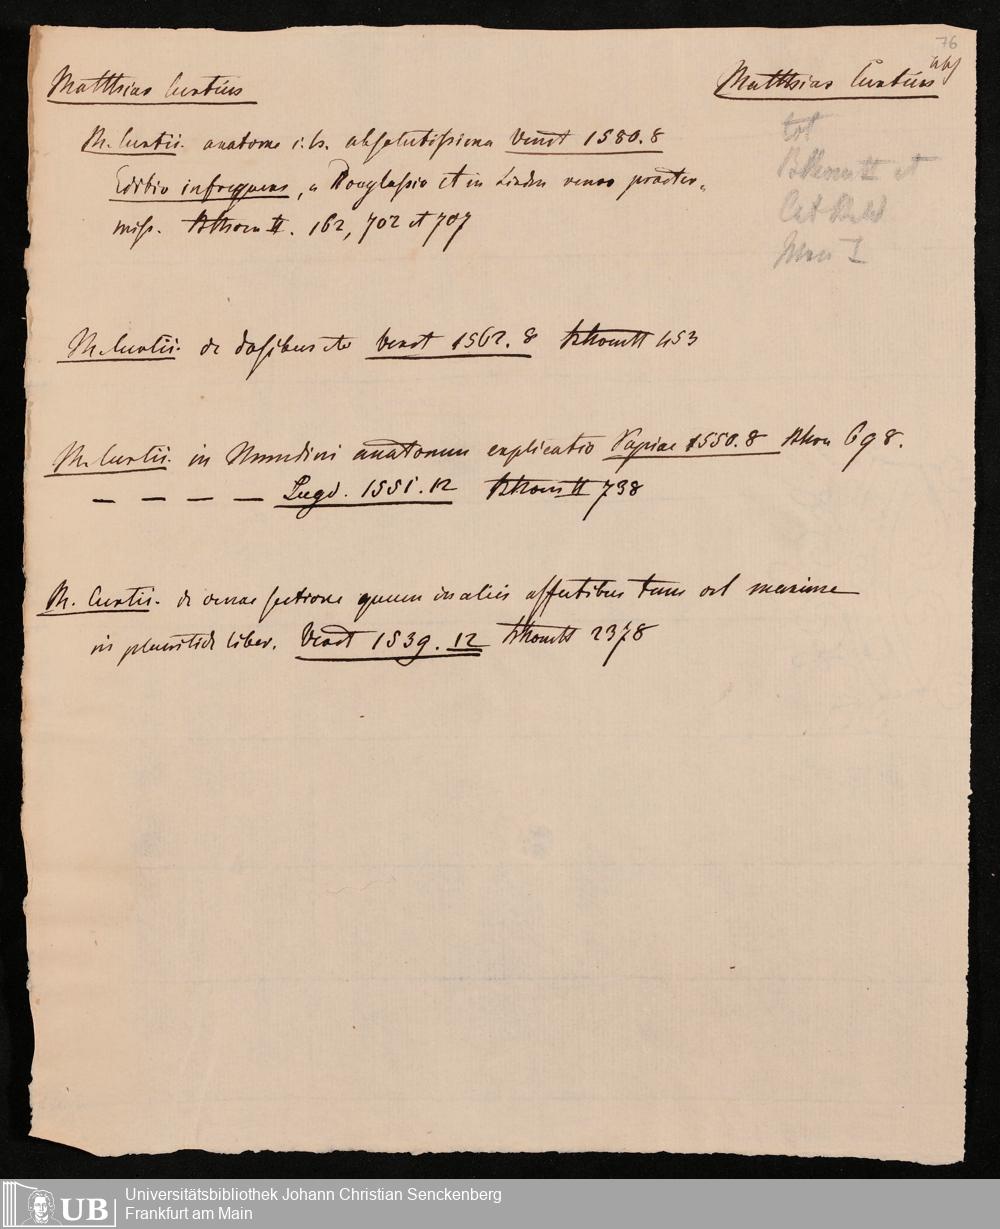 76
Matthias Curtius
Matthias Curtius
M. Curtii. anatome i. b. absolutissima Venet 1580. 8
Editio infrequens, a Douglassio et in Linden renov praeter„
miss. Bkhorn II. 162, 702 et 707
tot
II et
Cat
I
M. Curtii. de dosibus etc Venet 1562. 8 453
M. Curtii. in Mundini anatomen explicatio Papiae 1550. 8 698.
— — — — Lugd. 1551. 12 II 738
M. Curtii. de venae sectione quum in aliis affectibus tum vel maxime
in pleuritide liber. Venet 1539. 12 2378
Universitätsbibliothek Johann Christian Senckenberg
Frankfurt am Main
UB